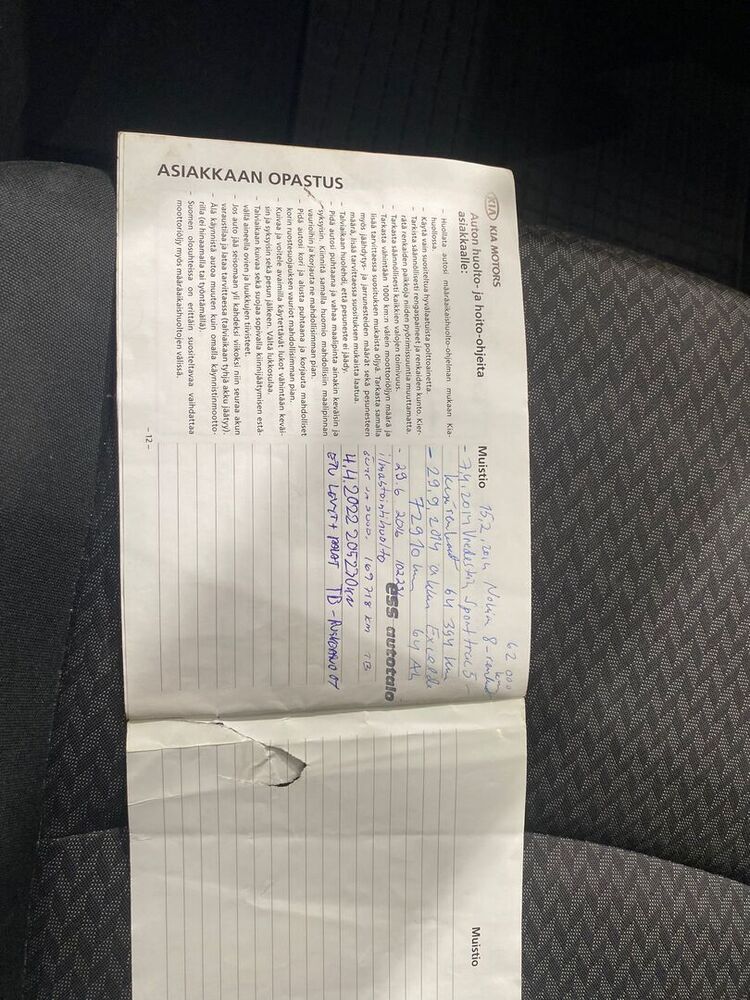 ASIAKKAAN OPASTUS
KIA KIA MOTORS
Auton huolto- ja hoito-ohjeita
asiakkaalle:
- Huollata autosi määräaikaishuolto-ohjelman mukaan Kia-
huollossa.
- Käytä vain suositeltua hyvälaatuista polttoainetta.
- Tarkista säännöllisesti rengaspaineet ja renkaiden kunto. Kier-
rätä renkaiden paikkoja niiden pyörimissuuntia muuttamatta.
- Tarkasta säännöllisesti kaikkien valojen toimivuus.
- Tarkasta vähintään 1000 km:n välein moottoriöljyn määrä ja
lisää tarvittaessa suosituksen mukaista öljyä. Tarkasta samalla
myös jäähdytys- ja jarrunesteiden määrät sekä pesunesteen
määrä, lisää tarvittaessa suosituksen mukaista laatua.
- Talviaikaan huolehdi, että pesuneste ei jäädy.
- Pidä autosi puhtaana ja vahaa maalipinta ainakin keväisin ja
syksyisin. Kiinnitä samalla huomio mahdollisiin maalipinnan
vaurioihin ja korjauta ne mahdollisimman pian.
- Pidä autosi kori ja alusta puhtaana ja korjauta mahdolliset
korin ruostesuojauksen vauriot mahdollisimman pian.
- Kuivaa ja voitele avaimilla käytettävät lukot vähintään keväi-
sin ja syksyisin sekä pesun jälkeen. Vältä lukkosulaa.
- Talviaikaan kuivaa sekä suojaa sopivalla kiinnijäätymisen estä-
vällä aineella ovien ja luukkujen tiivisteet.
- Jos auto jää seisomaan yli kahdeksi viikoksi niin seuraa akun
varaustilaa ja lataa tarvittaessa (talviaikaan tyhjä akku jäätyy).
- Älä käynnistä autoa muuten kuin omalla käynnistinmootto-
rilla (ei hinaamalla tai työntämällä).
- Suomen olosuhteissa on erittäin suositeltavaa vaihdattaa
moottoriöljy myös määräaikaishuoltojen välissä.
- 12 -
62 000
km
Muistio 15.2.2014 Nokia 8-
- 7.4.2014 Vredestein Sporttrac 5-
kesärenkaat 64 394 km
- 29.9.2014 akku Exide
72910 km 64 Ah
- 29.6 2016
ilmastointihuolto
ess autotalo
169 718 km TB
4.4.2022 205230km
ETU LEVYT + PALAT TB-
Muistio